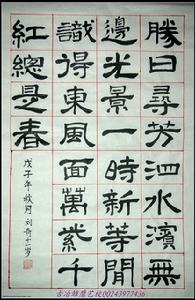 勝日尋芳泗水濱無
邊光景一時新等閒
識得東風面萬紫千
紅總是春
戊子年秋月 刘奇十岁
古冶艺校00243977436